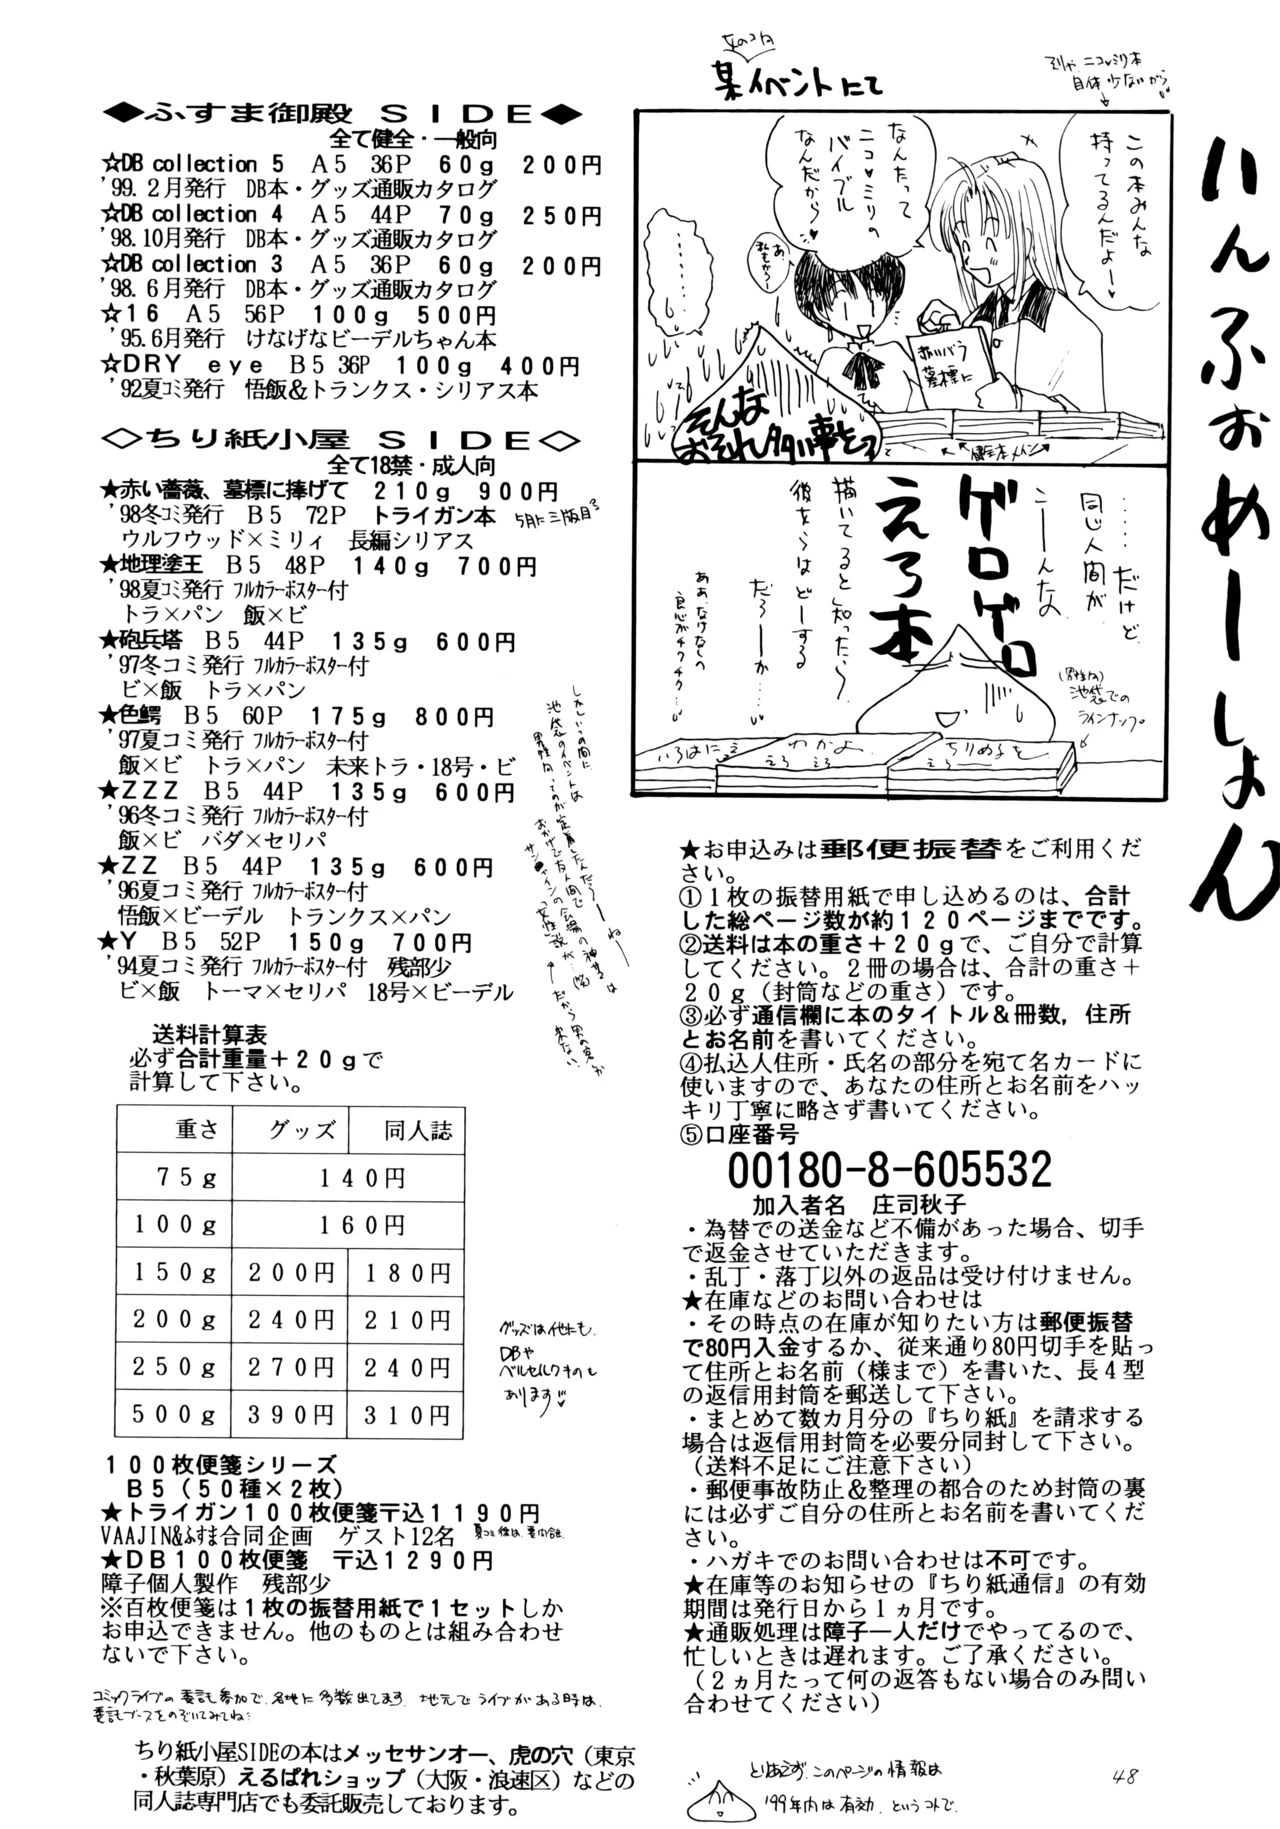 いんふぉめーしょん
女のコ向
某イベントにて
自体少ないから
この本みんな
持ってるんだよー♥
なんたって
ニコ♥ミリの
バイブル
なんだから♥
あ、
私もかろー
………
赤いバラ
墓標に
そんな
おそれタタい事を
……だけど
同じ人間が
こーーんな
ゲロゲロ
えろ本
描いてると知ったら
彼女らはどーする
だろーーか……
ああ、なけなしの
良心がチクチク…
(男性向)
池袋での
ラインナップ。
いろはにえ
わかよ
ちりぬるを
◆ふすま御殿 SIDE◆
全て健全・一般向
☆DB collection 5 A5 36P 60g 200円
'99.2月発行 DB本・グッズ通販カタログ
☆DB collection 4 A5 44P 70g 250円
'98.10月発行 DB本・グッズ通販カタログ
☆DB collection 3 A5 36P 60g 200円
'98.6月発行 DB本・グッズ通販カタログ
☆16 A5 56P 100g 500円
'95.6月発行 けなげなビーデルちゃん本
☆DRY eye B5 36P 100g 400円
'92夏コミ発行 悟飯&トランクス・シリアス本
◇ちり紙小屋 SIDE◇
全て18禁・成人向
★赤い薔薇、墓標に捧げて 210g 900円
'98冬コミ発行 B5 72P トライガン本 5月に三版目
ウルフウッド×ミリィ 長編シリアス
★地理塗王 B5 48P 140g 700円
'98夏コミ発行 フルカラーポスター付
トラ×パン 飯×ビ
★砲兵塔 B5 44P 135g 600円
'97冬コミ発行 フルカラーポスター付
ビ×飯 トラ×パン
★色鰐 B5 60P 175g 800円
'97夏コミ発行 フルカラーポスター付
飯×ビ トラ×パン 未来トラ・18号・ビ
★ZZZ B5 44P 135g 600円
'96冬コミ発行 フルカラーポスター付
飯×ビ バダ×セリパ
★ZZ B5 44P 135g 600円
'96夏コミ発行 フルカラーポスター付
悟飯×ビーデル トランクス×パン
★Y B5 52P 150g 700円
'94夏コミ発行 フルカラーポスター付 残部少
ビ×飯 トーマ×セリパ 18号×ビーデル
送料計算表
必ず合計重量+20gで
計算して下さい。
重さ グッズ 同人誌
75g 140円
100g 160円
150g 200円 180円
200g 240円 210円
250g 270円 240円
500g 390円 310円
グッズは他にも、
DBや
ベルセルクキのも
あります♥
100枚便箋シリーズ
B5(50種×2枚)
★トライガン100枚便箋〒込1190円
VAAJIN&ふすま合同企画 ゲスト12名
★DB100枚便箋 〒込1290円
障子個人製作 残部少
※百枚便箋は1枚の振替用紙で1セットしか
お申込できません。他のものとは組み合わせ
ないで下さい。
コミックライブの委託参加で、各地に多数出てます。地元でライブがある時は、
委託ブースをのぞいてみてね
ちり紙小屋SIDEの本はメッセサンオー、虎の穴(東京
・秋葉原)えるぱれショップ(大阪・浪速区)などの
同人誌専門店でも委託販売しております。
★お申込みは郵便振替をご利用くだ
さい。
①1枚の振替用紙で申し込めるのは、合計
した総ページ数が約120ページまでです。
②送料は本の重さ+20gで、ご自分で計算
してください。2冊の場合は、合計の重さ+
20g(封筒などの重さ)です。
③必ず通信欄に本のタイトル&冊数,住所
とお名前を書いてください。
④払込人住所・氏名の部分を宛て名カードに
使いますので、あなたの住所とお名前をハッ
キリ丁寧に略さず書いてください。
⑤口座番号
00180-8-605532
加入者名 庄司秋子
・為替での送金など不備があった場合、切手
で返金させていただきます。
・乱丁・落丁以外の返品は受け付けません。
★在庫などのお問い合わせは
・その時点の在庫が知りたい方は郵便振替
で80円入金するか、従来通り80円切手を貼っ
て住所とお名前(様まで)を書いた、長4型
の返信用封筒を郵送して下さい。
・まとめて数カ月分の『ちり紙』を請求する
場合は返信用封筒を必要分同封して下さい。
(送料不足にご注意下さい)
・郵便事故防止&整理の都合のため封筒の裏
には必ずご自分の住所とお名前を書いてくだ
さい。
・ハガキでのお問い合わせは不可です。
★在庫等のお知らせの『ちり紙通信』の有効
期間は発行日から1ヵ月です。
★通販処理は障子一人だけでやってるので、
忙しいときは遅れます。ご了承ください。
(2ヵ月たって何の返答もない場合のみ問い
合わせてください)
とりあえず、このページの情報は
'99年内は有効、というコトで。
48